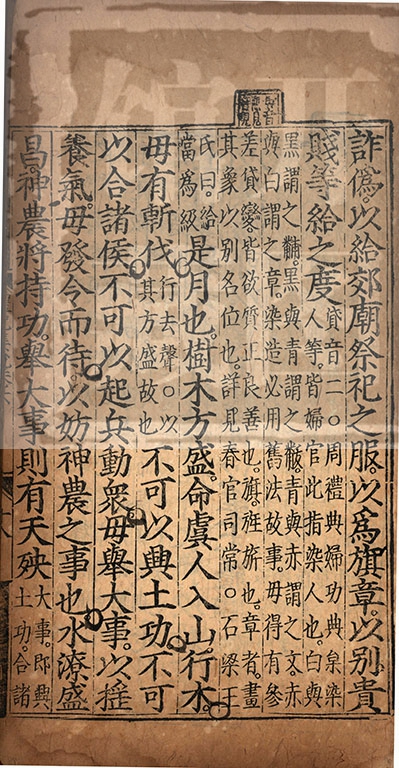 詐僞以給郊廟祭祀之服以爲旗章以別貴
賤等給之度
貸音二○周禮典婦功典枲染
人等皆婦官此指染人也白與
黑謂之黼黑與靑謂之黻靑與赤謂之文赤
與白謂之章染造必用舊法故事毋得有參
差貸變皆欲質正良善也旗旌旂也章者畫
其象以別名位也詳見春官司常○石梁王
氏曰給
當爲級
是月也樹木方盛命虞人入山行木
毋有斬伐
行去聲○以
其方盛故也
不可以興土功不可
以合諸侯不可以起兵動衆毋舉大事以搖
養氣毋發令而待以妨神農之事也水潦盛
昌神農將持功舉大事則有天殃
大事卽興
土功合諸